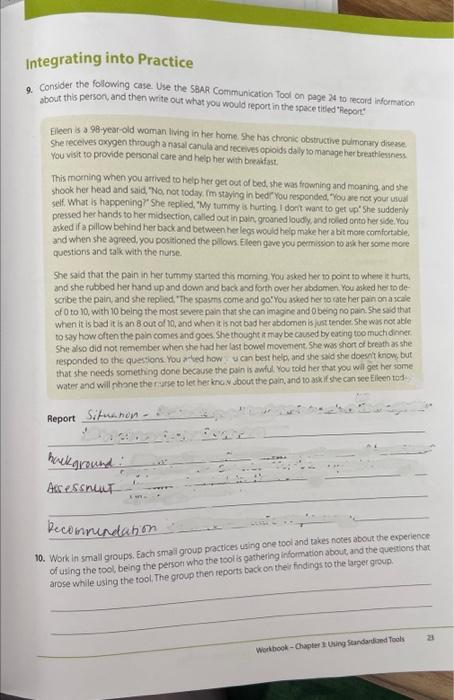 Integrating into Practice
9. Consider the following case. Use the SBAR Communication Tool on page 24 to record information
about this person, and then write out what you would report in the space titled "Report."
Eileen is a 98-year-old woman living in her home. She has chronic obstructive pulmonary disease.
She receives oxygen through a nasal canula and receives opioids daily to manage her breathlessness.
You visit to provide personal care and help her with breakfast.
This morning when you arrived to help her get out of bed, she was frowning and moaning, and she
shook her head and said, "No, not today. I'm staying in bed." You responded, "You are not your usual
self. What is happening?" She replied, "My tummy is hurting. I don't want to get up." She suddenly
pressed her hands to her midsection, called out in pain, groaned loudly, and rolled onto her side. You
asked if a pillow behind her back and between her legs would help make her a bit more comfortable,
and when she agreed, you positioned the pillows. Eileen gave you permission to ask her some more
questions and talk with the nurse.
She said that the pain in her tummy started this morning. You asked her to point to where it hurts,
and she rubbed her hand up and down and back and forth over her abdomen. You asked her to de-
scribe the pain, and she replied, "The spasms come and go." You asked her to rate her pain on a scale
of 0 to 10, with 10 being the most severe pain that she can imagine and 0 being no pain. She said that
when it is bad it is an 8 out of 10, and when it is not bad her abdomen is just tender. She was not able
to say how often the pain comes and goes. She thought it may be caused by eating too much dinner.
She also did not remember when she had her last bowel movement. She was short of breath as she
responded to the questions. You asked how u can best help, and she said she doesn't know, but
that she needs something done because the pain is awful. You told her that you will get her some
water and will phone the nurse to let her know about the pain, and to ask if she can see Eileen tod
Report Situation -
background :
Assessment
Recommendation
10. Work in small groups. Each small group practices using one tool and takes notes about the experience
of using the tool, being the person who the tool is gathering information about, and the questions that
arose while using the tool. The group then reports back on their findings to the larger group.
Workbook – Chapter 3: Using Standardized Tools 23